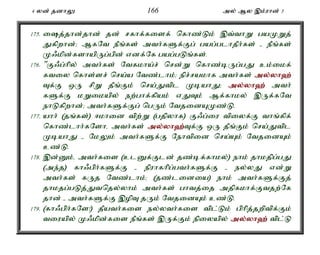 4 லன் தனாலூ 166 அல் ஆல இம்ரான் 3
175. ஷைத்தான்தான் தன் சகாக்களைக் கொண்டும் இவ்வாறு பயமுறுத்
துகிறான்; ஆகவே நீங்கள் அவர்களுக்குப் பயப்படாதீர்கள் - நீங்கள்
முஃமின்களாயிருப்பின் எனக்கே பயப்படுங்கள்.
176. "குஃப்ரில் அவர்கள் வேகமாய்ச் சென்று கொண்டிருப்பது உம்மைக்
கவலை கொள்ளச் செய்ய வேண்டாம்; நிச்சயமாக அவர்கள் அல்லாஹ்
வுக்கு ஒரு சிறு தீங்கும் செய்துவிட முடியாது; அல்லாஹ் அவர்
களுக்கு மறுமையில் நற்பாக்கியம் எதுவும் ஆக்காமல் இருக்கவே
நாடுகிறான்; அவர்களுக்குப் பெரும் வேதனையுமுண்டு.
177. யார் (தங்கள்) ஈமானை விற்று (பதிலாக) குஃப்ரை விலைக்கு வாங்கிக்
கொண்டார்களோ, அவர்கள் அல்லாஹ்வுக்கு ஒரு தீங்கும் செய்துவிட
முடியாது - மேலும் அவர்களுக்கு நோவினை செய்யும் வேதனையும்
உண்டு.
178. இன்னும், அவர்களை (உடனுக்குடன் தண்டிக்காமல்) நாம் தாமதிப்பது
(அந்த) காஃபிர்களுக்கு - நிராகரிப்பவர்களுக்கு - நல்லது என்று
அவர்கள் கருத வேண்டாம்; (தண்டனையை) நாம் அவர்களுக்குத்
தாமதப்படுத்துவதெல்லாம் அவர்கள் பாவத்தை அதிகமாக்குவதற்கே
தான் - அவர்களுக்கு இழிவு தரும் வேதனையும் உண்டு.
179. (காஃபிர்களே!) தீயவர்களை நல்லவர்களை விட்டும் பிரித்தறிவிக்கும்
வரையில் முஃமின்களை நீங்கள் இருக்கும் நிலையில் அல்லாஹ் விட்டு